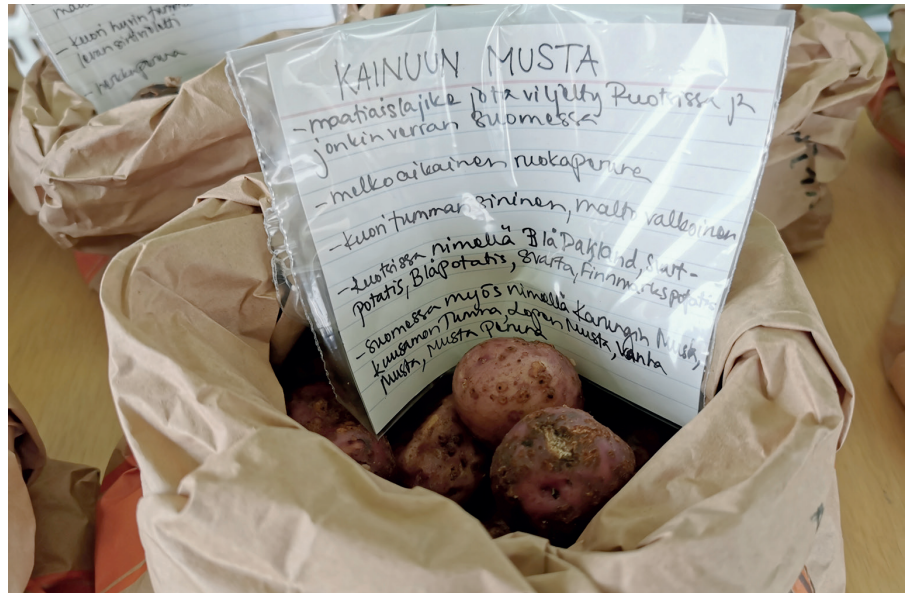 - kuori hyvin tumma
KAINUUN MUSTA
- maatiaislajike jota viljelty Ruotsissa ja
jonkin verran Suomessa
- melko aikainen ruokaperuna
- kuori tumman sininen, malto valkoinen
- Ruotsissa nimellä Blå Dalsland, Svart-
potatis, Blåpotatis, Svarta, Finnmarkspotatis
- Suomessa myös nimellä Karungin Musta,
Kuusamon Tumma, Lopen Musta, Vanha
Musta, Musta Peruna
- ruokaperuna